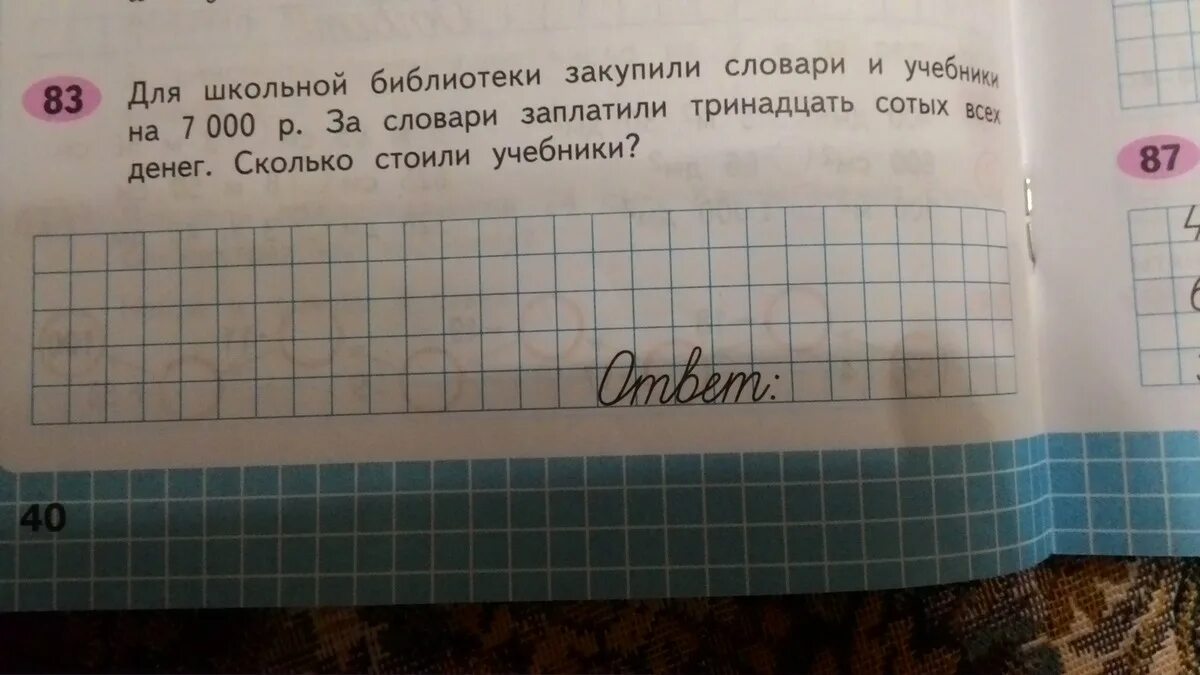 83 Для школьной библиотеки закупили словари и учебники
на 7 000 р. За словари заплатили тринадцать сотых всех
денег. Сколько стоили учебники?
Ответ:
40
87
4
6